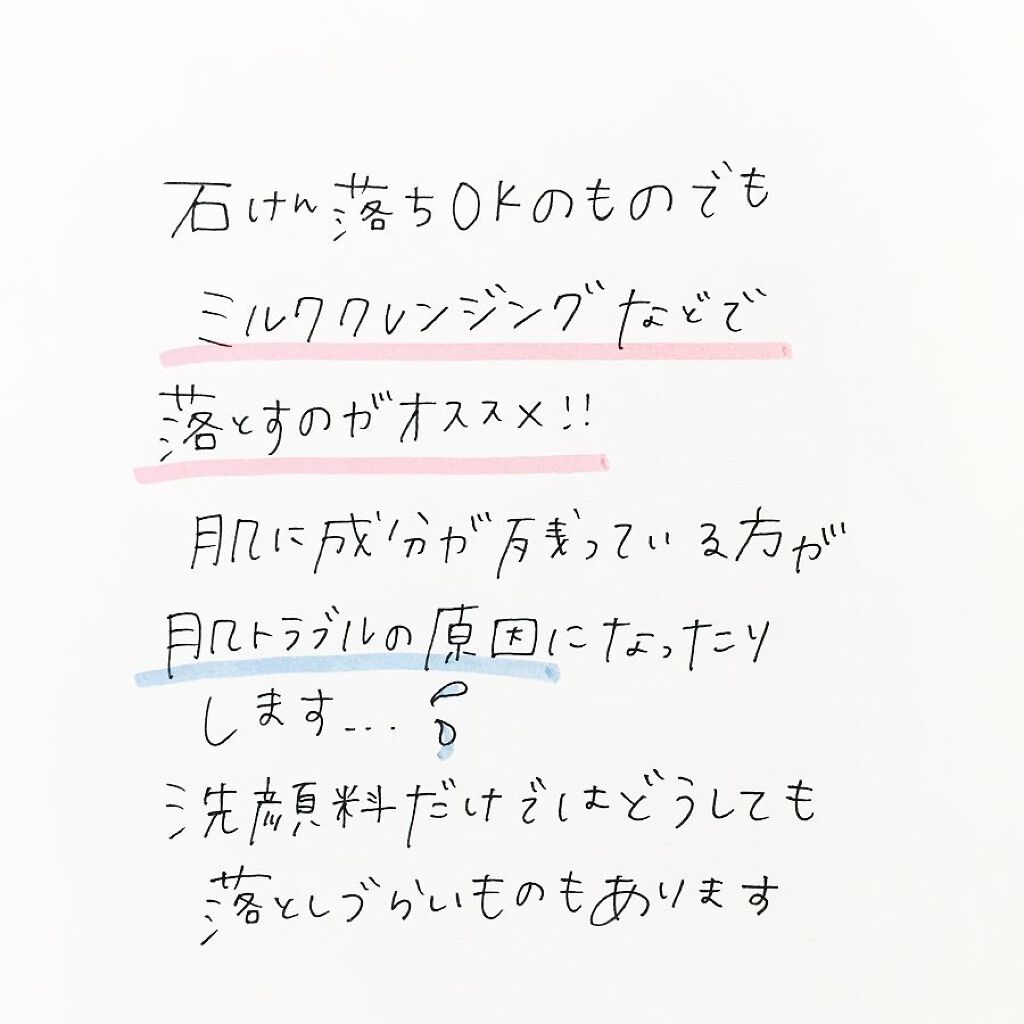 石けん落ちOKのものでも
ミルククレンジングなどで
落とすのがオススメ!!
肌に成分が残っている方が
肌トラブルの原因になったり
します...
洗顔料だけではどうしても
落としづらいものもあります